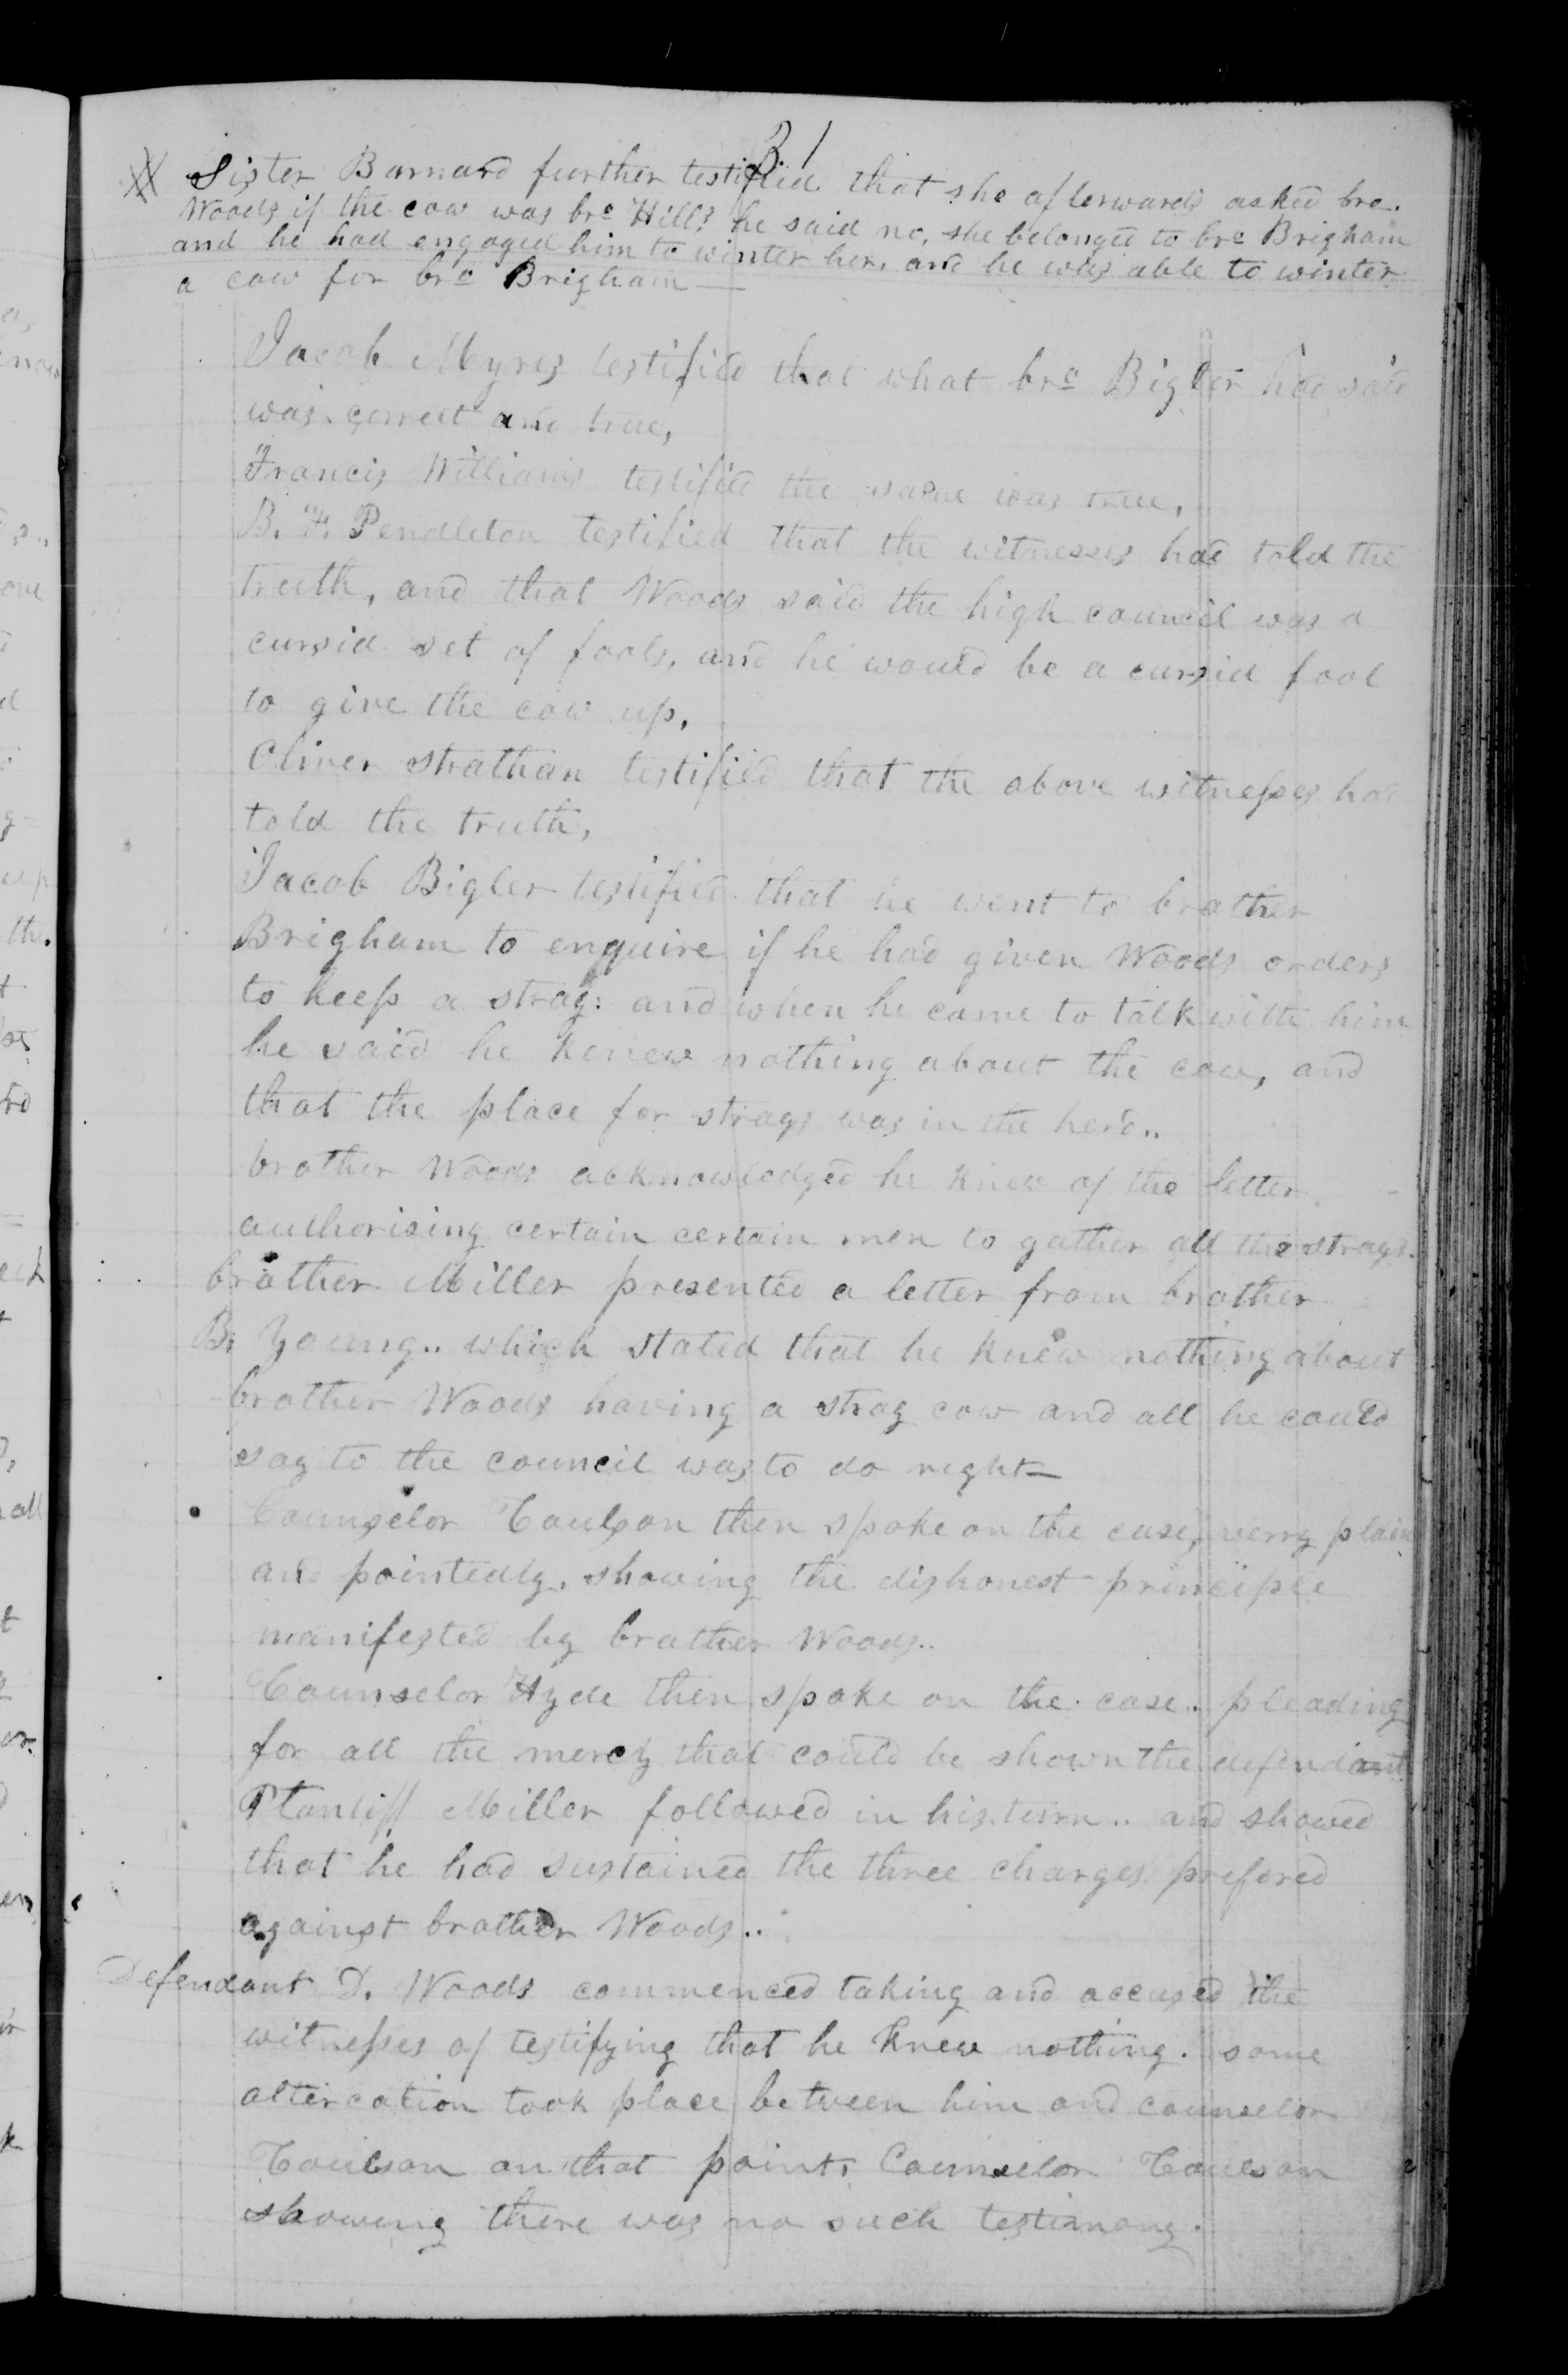 31
Sister Barnard further testified that she afterwards asked bro.
Woods if the cow was bro Hills he said no, she belonged to bro Brigham
and he had engaged him to winter her, and he was able to winter
a cow for bro Brigham —
Jacob Myres testified that what bro Bigler had said
was correct and true,
Francis Williams testified the same was true,
B. F. Pendleton testified that the witnesses had told the
truth, and that Woods said the high council was a
cursid set of fools, and he would be a cursid fool
to give the cow up,
Oliver Strathan testified that the above witnesses had
told the truth,
Jacob Bigler testified that he went to brother
Brigham to enquire if he had given Woods orders
to keep a stray: and when he came to talk with him
he said he knew nothing about the cow, and
that the place for strays was in the herd..
brother Woods acknowledged he knew of the letter
authorising certain certain men to gather all the strays.
brother Miller presented a letter from brother
B. Young.. which stated that he knew nothing about
brother Woods having a stray cow and all he could
say to the council was to do right—
Counselor Coulson then spoke on the case, verry plain
and pointedly, showing the dishonest principle
manifested by brother Woods..
Counselor Hyde then spoke on the case.. pleading
for all the mercy that could be shown the defendant
Plantiff Miller followed in his turn.. and showed
that he had sustained the three charges prefered
against brother Woods..
Defendant D. Woods commenced taking and accused the
witnesses of testifying that he knew nothing. some
altercation took place between him and counselor
Coulson on that point, Counselor Coulson
showing there was no such testimony.